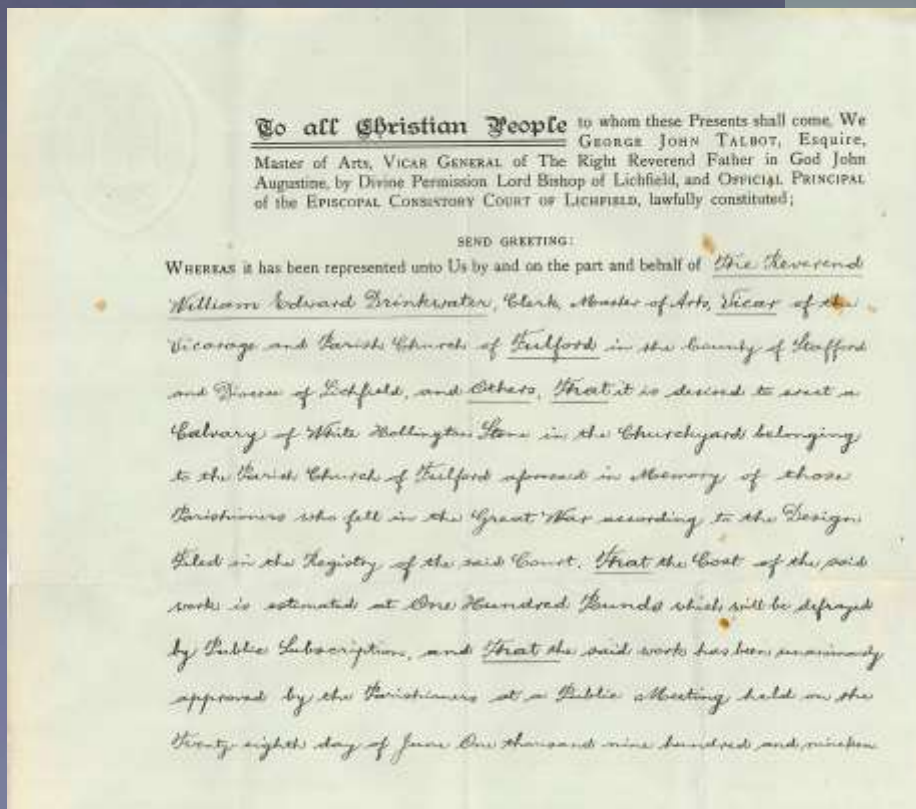 To all Christian People to whom these Presents shall come, We
GEORGE JOHN TALBOT, Esquire,
Master of Arts, VICAR GENERAL of The Right Reverend Father in God John
Augustine, by Divine Permission Lord Bishop of Lichfield, and OFFICIAL PRINCIPAL
of the EPISCOPAL CONSISTORY COURT OF LICHFIELD, lawfully constituted;
SEND GREETING:
WHEREAS it has been represented unto Us by and on the part and behalf of The Reverend
William Edward Drinkwater, Clerk, Master of Arts, Vicar of the
Vicarage and Parish Church of Fulford in the County of Stafford
and Diocese of Lichfield, and Others, That it is desired to erect a
Calvary of White Hollington Stone in the Churchyard belonging
to the Parish Church of Fulford aforesaid in Memory of those
Parishioners who fell in the Great War according to the Design
Filed in the Registry of the said Court. That the Cost of the said
work is estimated at One Hundred Pounds which will be defrayed
by Public Subscription, and That the said work has been unanimously
approved by the Parishioners at a Public Meeting held on the
Twenty eighth day of June One thousand nine hundred and nineteen